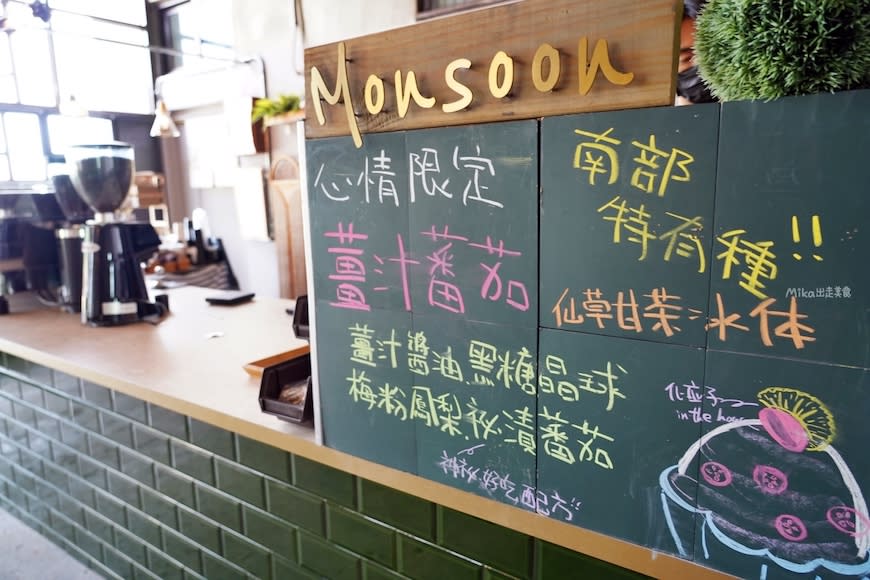 Monsoon
心情限定
薑汁蕃茄
薑汁醬油黑糖晶球
梅粉鳳梨祕漬蕃茄
配方
南部
特有種!!
仙草甘茶冰体
Mika出走美食
化应子
in the house